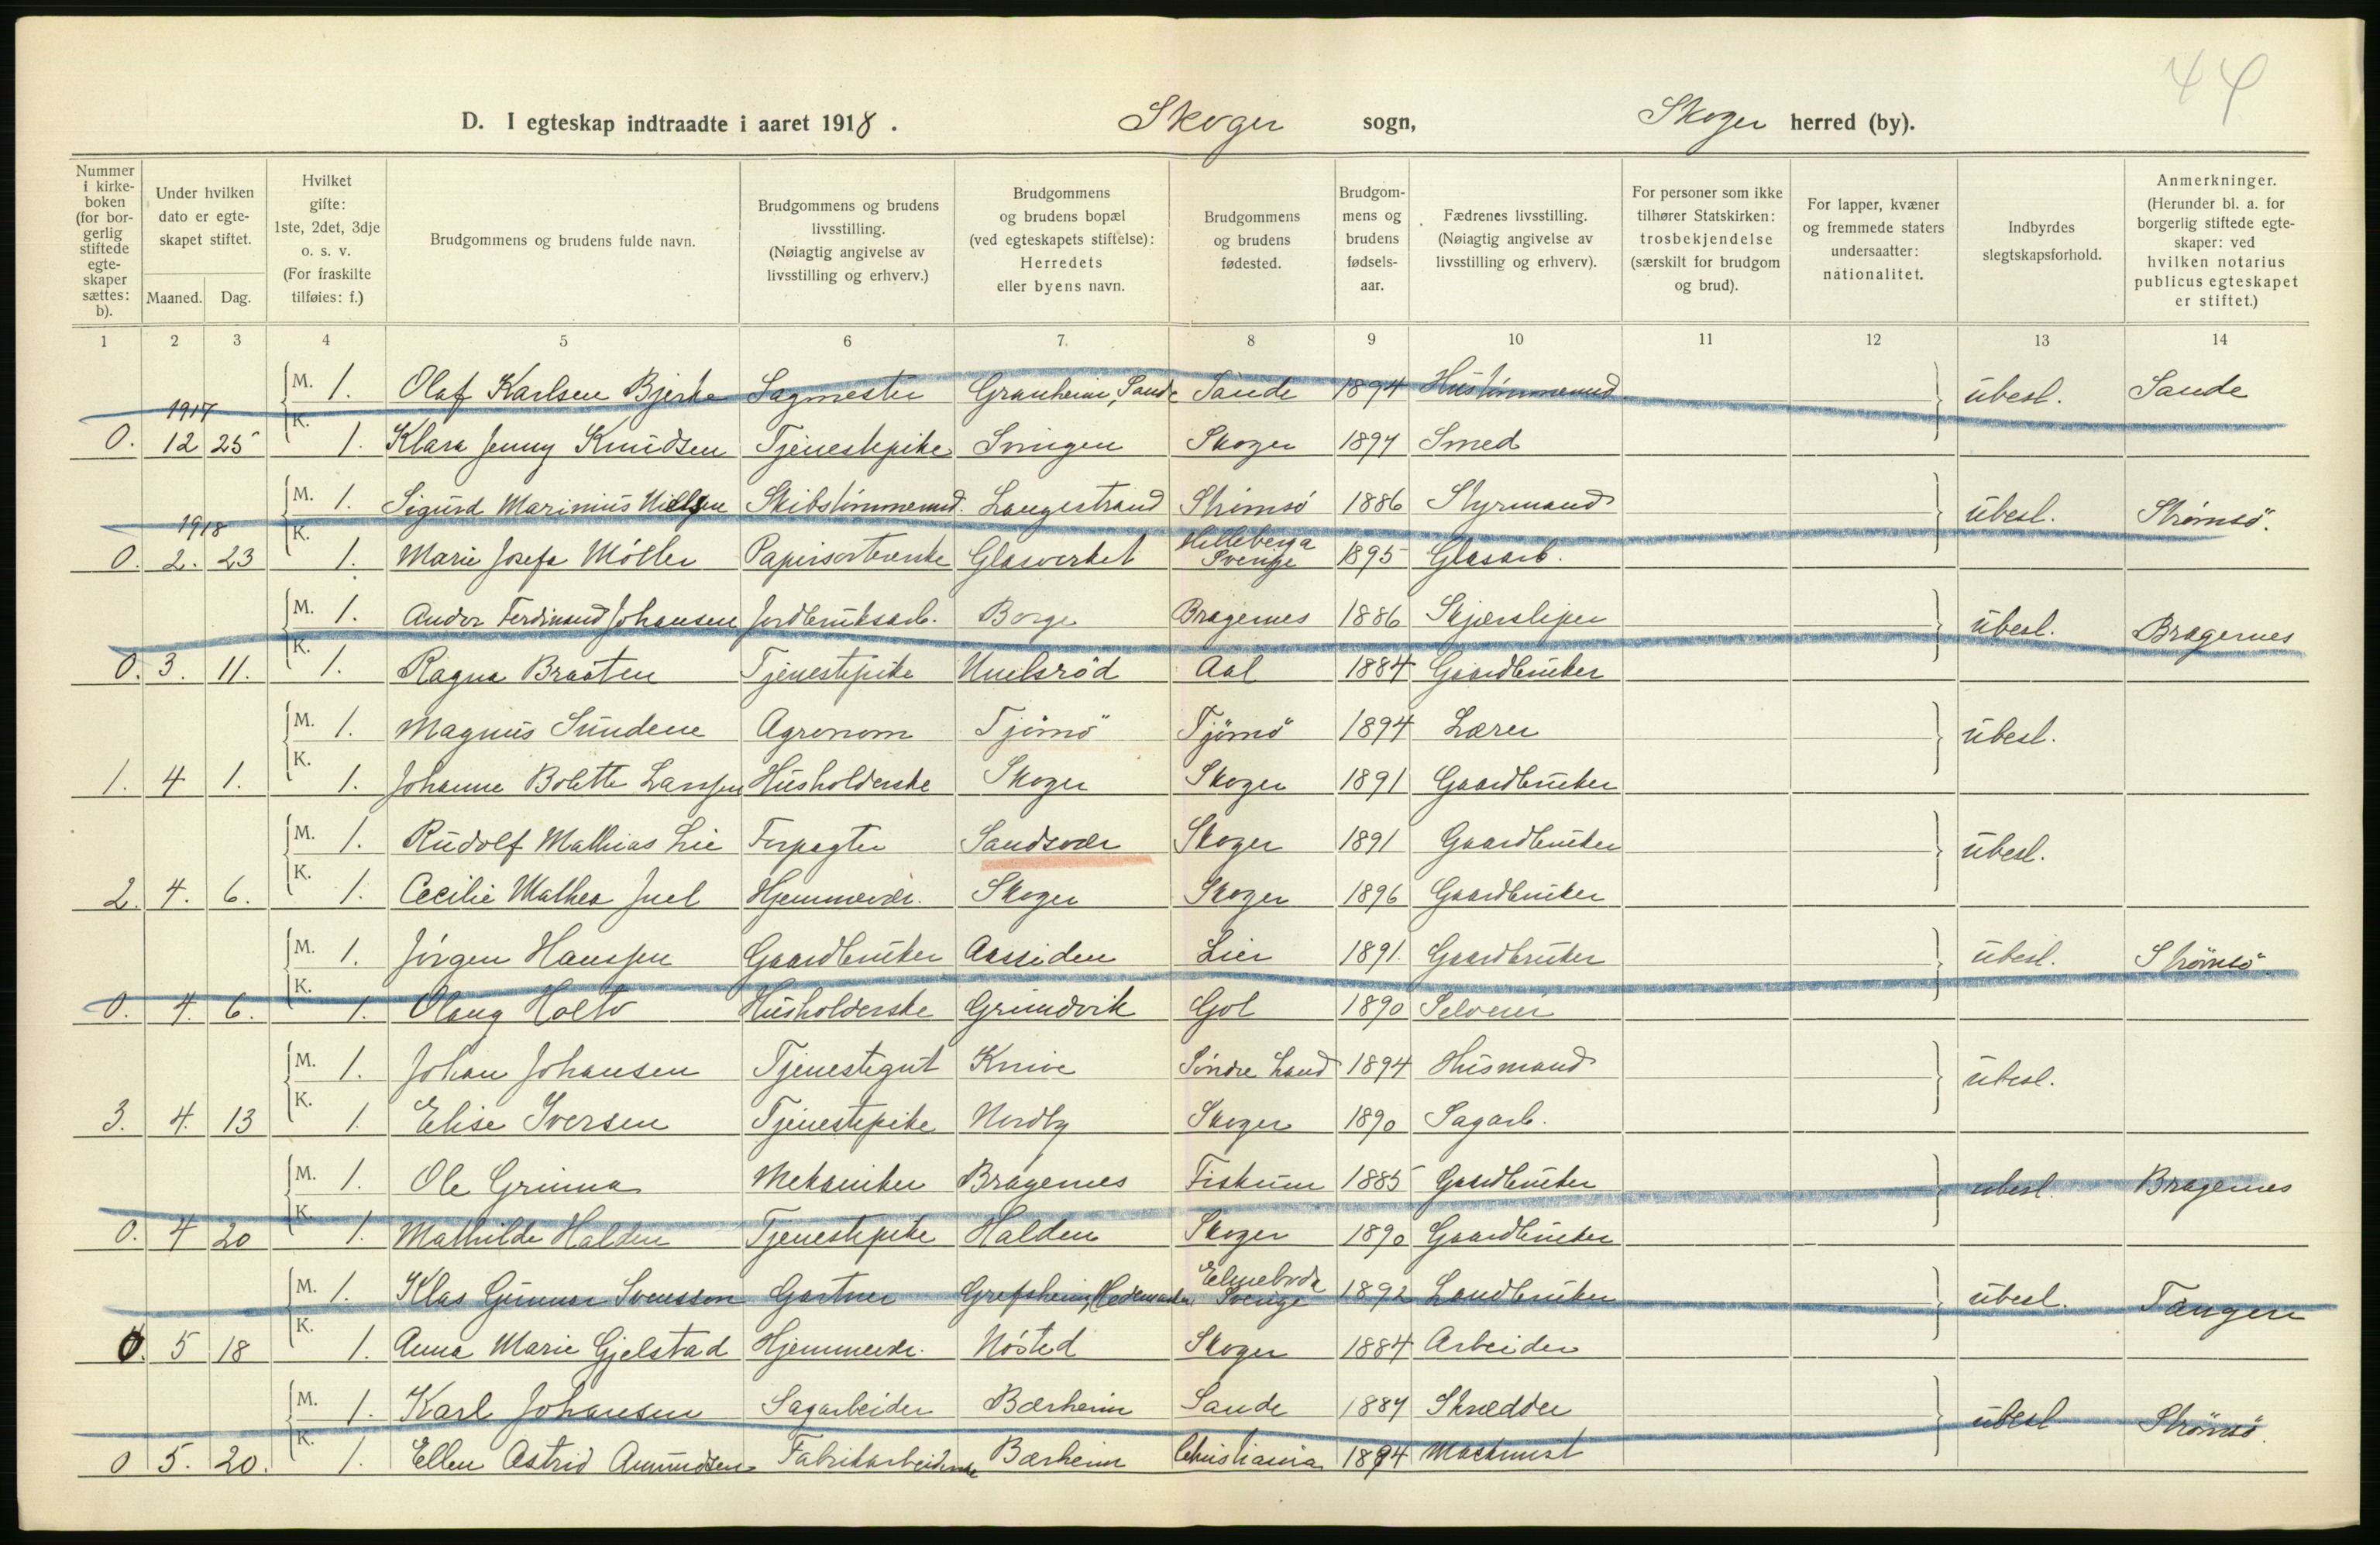 44
D. I egteskap indtraadte i aaret 1918. Skoger sogn, Skoger herred (by).
Nummer i kirke-boken (for bor-gerlig stiftede egte-skaper sættes: b).
Under hvilken dato er egte-skapet stiftet.
Maaned. Dag.
Hvilket gifte: 1ste, 2det, 3dje o. s. v. (For fraskilte tilføies: f.)
Brudgommens og brudens fulde navn.
Brudgommens og brudens livsstilling. (Nøiagtig angivelse av livsstilling og erhverv.)
Brudgommens og brudens bopæl (ved egteskapets stiftelse): Herredets eller byens navn.
Brudgommens og brudens fødested.
Brudgom-mens og brudens fødsels-aar.
Fædrenes livsstilling. (Nøiagtig angivelse av livsstilling og erhverv).
For personer som ikke tilhører Statskirken: trosbekjendelse (særskilt for brudgom og brud).
For lapper, kvæner og fremmede staters undersaatter: nationalitet.
Indbyrdes slegtskapsforhold.
Anmerkninger. (Herunder bl. a. for borgerlig stiftede egte-skaper: ved hvilken notarius publicus egteskapet er stiftet.)
1 2 3 4 5 6 7. 8 9 10 11 12 13 14
M. 1. Olaf Karlsen Bjerke Sagmester Granheim, Sande Sande 1894 Hustømmermd. ubesl. Sande
1917
0. 12 25 K. 1. Klara Jenny Knudsen Tjenestepike Svingen Skoger 1897 Smed
M. 1. Sigurd Marinius Nielsen Skibstømmermd. Langestrand Strømsø 1886 Styrmand ubesl. Strømsø.
1918
0. 2. 23 K. 1. Marie Josefa Møller Papirsorterske Glasverket Helleberga Sverige 1895 Glasarb.
M. 1. Andor Ferdinand Johansen Jordbruksarb. Borge Bragernes 1886 Skjærsliper ubesl. Bragernes
0. 3. 11. K. 1. Ragna Braaten Tjenestepike Unelsrød Aal 1884 Gaardbruker
M. 1. Magnus Sundene Agronom Tjømø Tjømø 1894 Lærer ubesl.
1. 4 1. K. 1. Johanne Bolette Larssen Husholderske Skoger Skoger 1891 Gaardbruker
M. 1. Rudolf Mathias Lie Forpagter Sandsvær Skoger 1891 Gaardbruker ubesl.
2. 4. 6. K. 1. Cecilie Mathea Juel Hjemmevær. Skoger Skoger 1896 Gaardbruker
M. 1. Jørgen Hanssen Gaardbruker Aassiden Lier 1891. Gaardbruker ubesl. Strømsø.
0. 4. 6. K. 1. Olaug Holto Husholderske Grundvik Gol 1890 Selveier
M. 1. Johan Johansen Tjenestegut Knive Søndre Land 1894 Husmand ubesl.
3. 4. 13 K. 1. Elise Iversen Tjenestepike Nordby Skoger 1890 Sagarb.
M. 1. Ole Grinna Mekaniker Bragernes Fiskum 1885 Gaardbruker ubesl. Bragernes
0. 4 20 K. 1. Mathilde Halden Tjenestepike Halden Skoger 1890 Gaardbruker
M. 1. Klas Gunnar Svensson Gartner Grefsheim, Hedemarken Elmeboda Sverige 1892 Landbruker ubesl. Tangen
0. 5 18 K. 1. Anna Marie Gjelstad Hjemmevær. Nøsted Skoger 1884 Arbeider
M. 1. Karl Johansen Sagarbeider Bærheim Sande 1887 Skrædder ubesl Strømsø.
0 5. 20. K. 1. Ellen Astrid Amundsen Fabrikarbeiderske Bærheim Christiania 1894 Maskinist